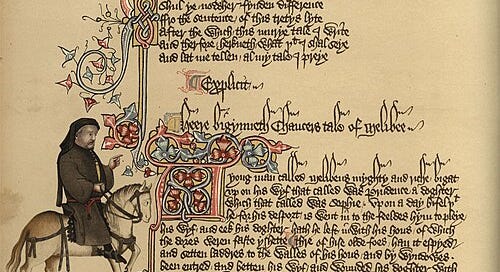 Shul ye nowher fynden difference
ffro the sentence / of this tretys lyte
After the which this murye tale I write
And therfore herkneth what yt I shal seye
And lat me tellen al my tale I preye
Explicit
Heere bigynneth Chaucers tale of Melibee
A yong man called Melibeus myghty and riche bigat
vp on his wyf that called was Prudence a doghter
which that called was Sophie / vpon a day bifel yt
he for his desport is went in to the feeldes hym to pleye
his wyf and eek his doghter hath he left in with his hous / of which
the dores weren faste yshette / thre of his olde foes han it espyed
and setten laddres to the walles of his hous / and by wyndowes
been entred / and betten his wyf and wounded his doghter with